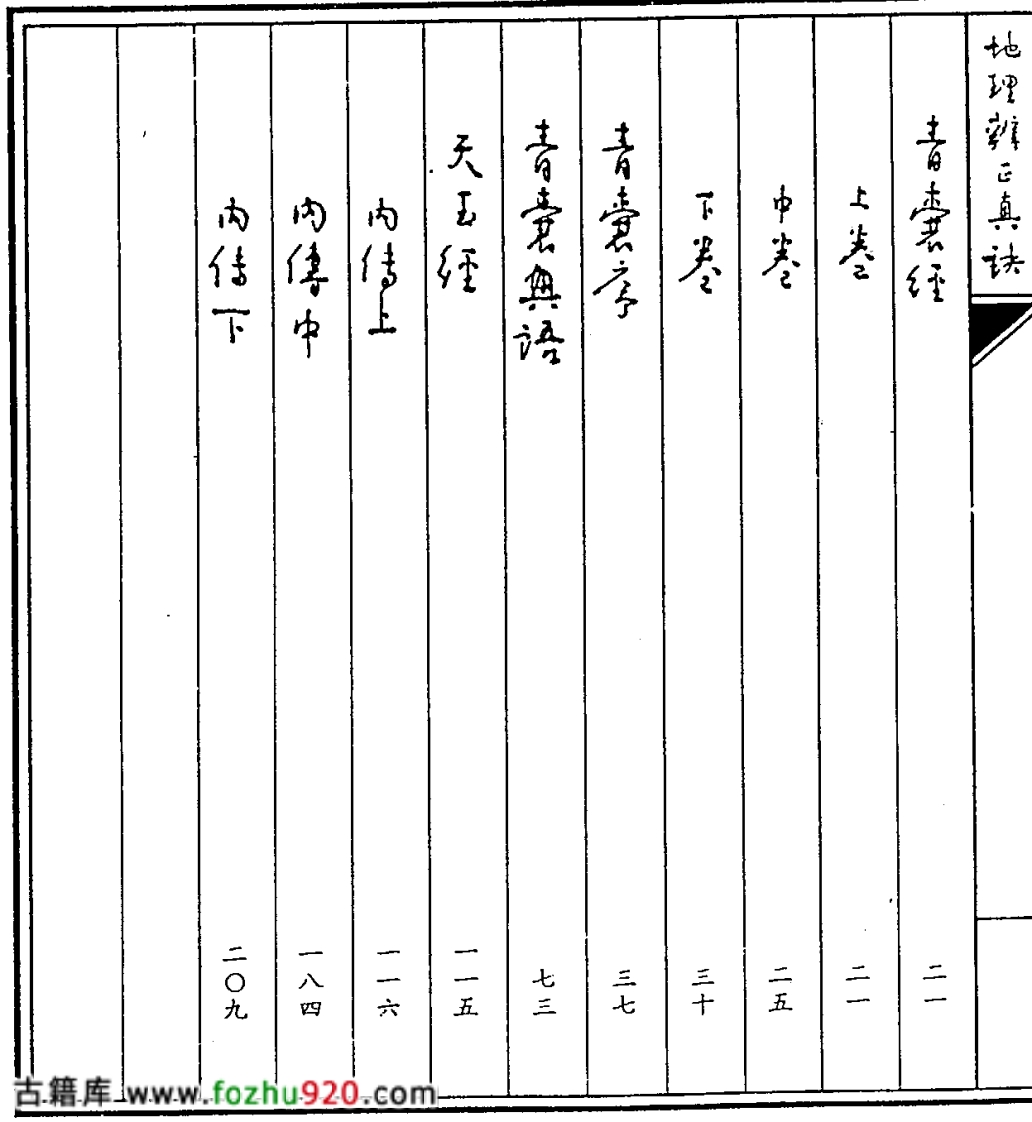 地理辨正真訣
青囊經 二一
上卷 二一
中卷 二五
下卷 三十
青囊序 三七
青囊奧語 七三
天玉經 一一五
內傳上 一一六
內傳中 一八四
內傳下 二〇九
古籍库 www.fozhu920.com